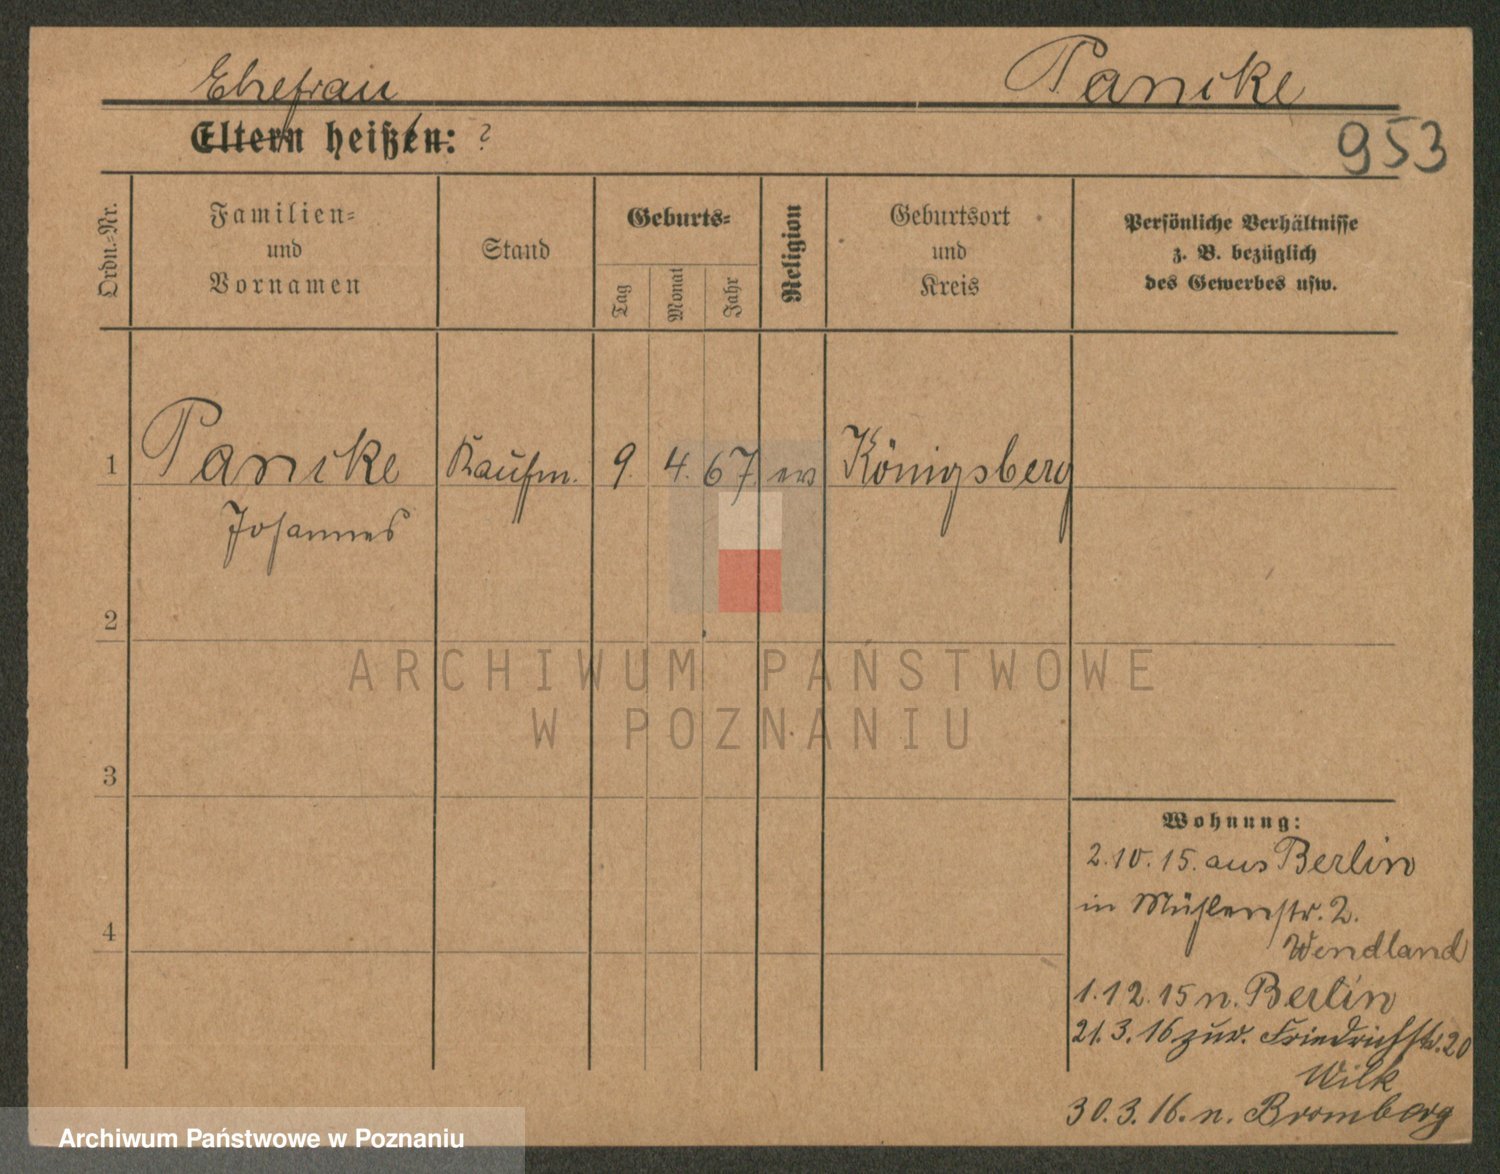 Ehefrau
Pancke
Eltern heißen: ?
953
Ordn.-Nr.
Familien-
und
Vornamen
Stand
Geburts-
Tag
Monat
Jahr
Religion
Geburtsort
und
Kreis
Persönliche Verhältnisse
z. B. bezüglich
des Gewerbes usw.
1 Pancke Kaufm. 9. 4. 67 ev Königsberg
Johannes
2
3
4
Wohnung:
2.10.15. aus Berlin
in Mühlenstr. 2.
Wendland
1.12.15 n. Berlin
21.3.16 zur. Friedrichstr. 20
Wilk
30.3.16. n. Bromberg
ARCHIWUM PAŃSTWOWE
W POZNANIU
Archiwum Państwowe w Poznaniu